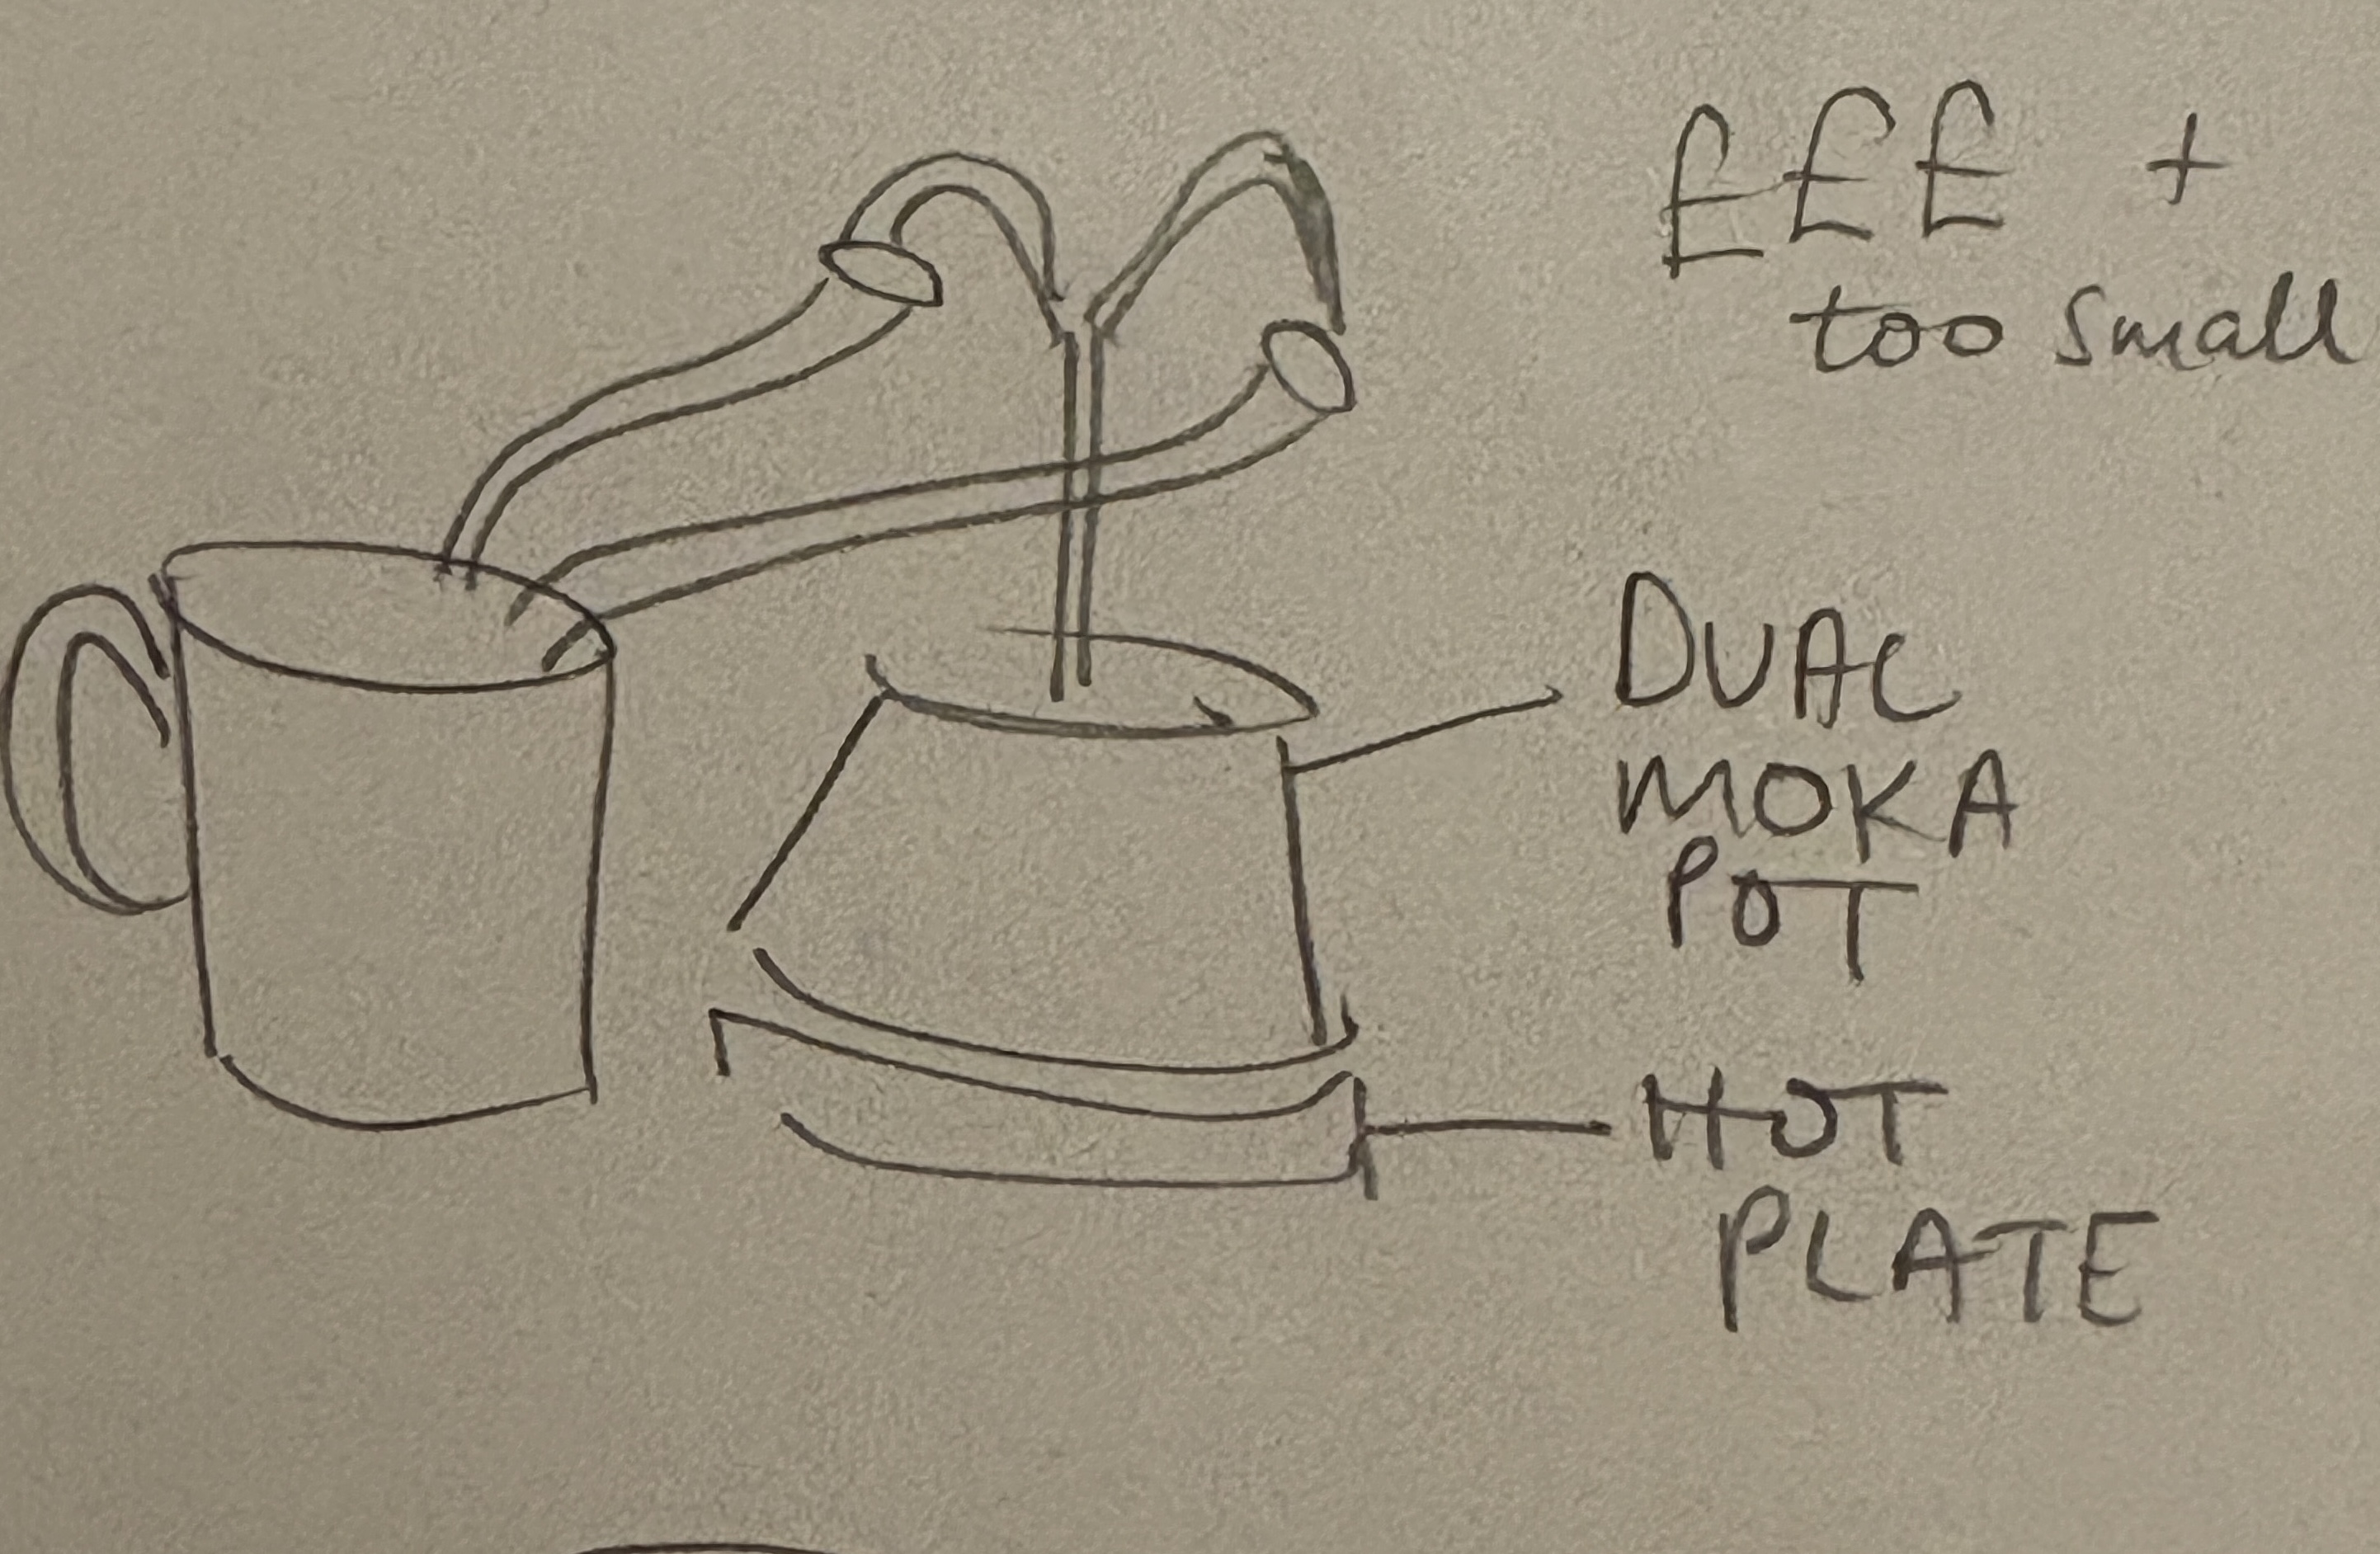 £££ +
too small
DUAL
MOKA
POT
HOT
PLATE